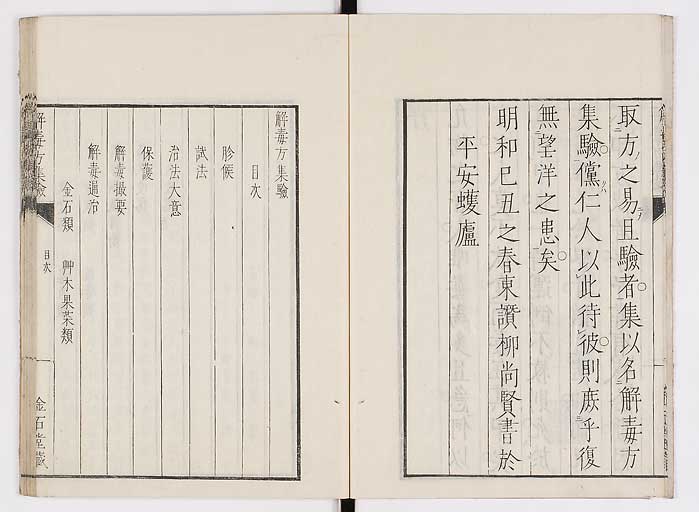 取方之易且驗者集以名解毒方
集驗儻仁人以此待彼則庶乎復
無望洋之患矣
明和己丑之春東讃柳尚賢書於
平安蠖廬
解毒方集驗
目次
診候
試法
治法大意
保護
解毒撮要
解毒通治
金石類 艸木果菜類
解毒方集驗
目次
金石堂藏